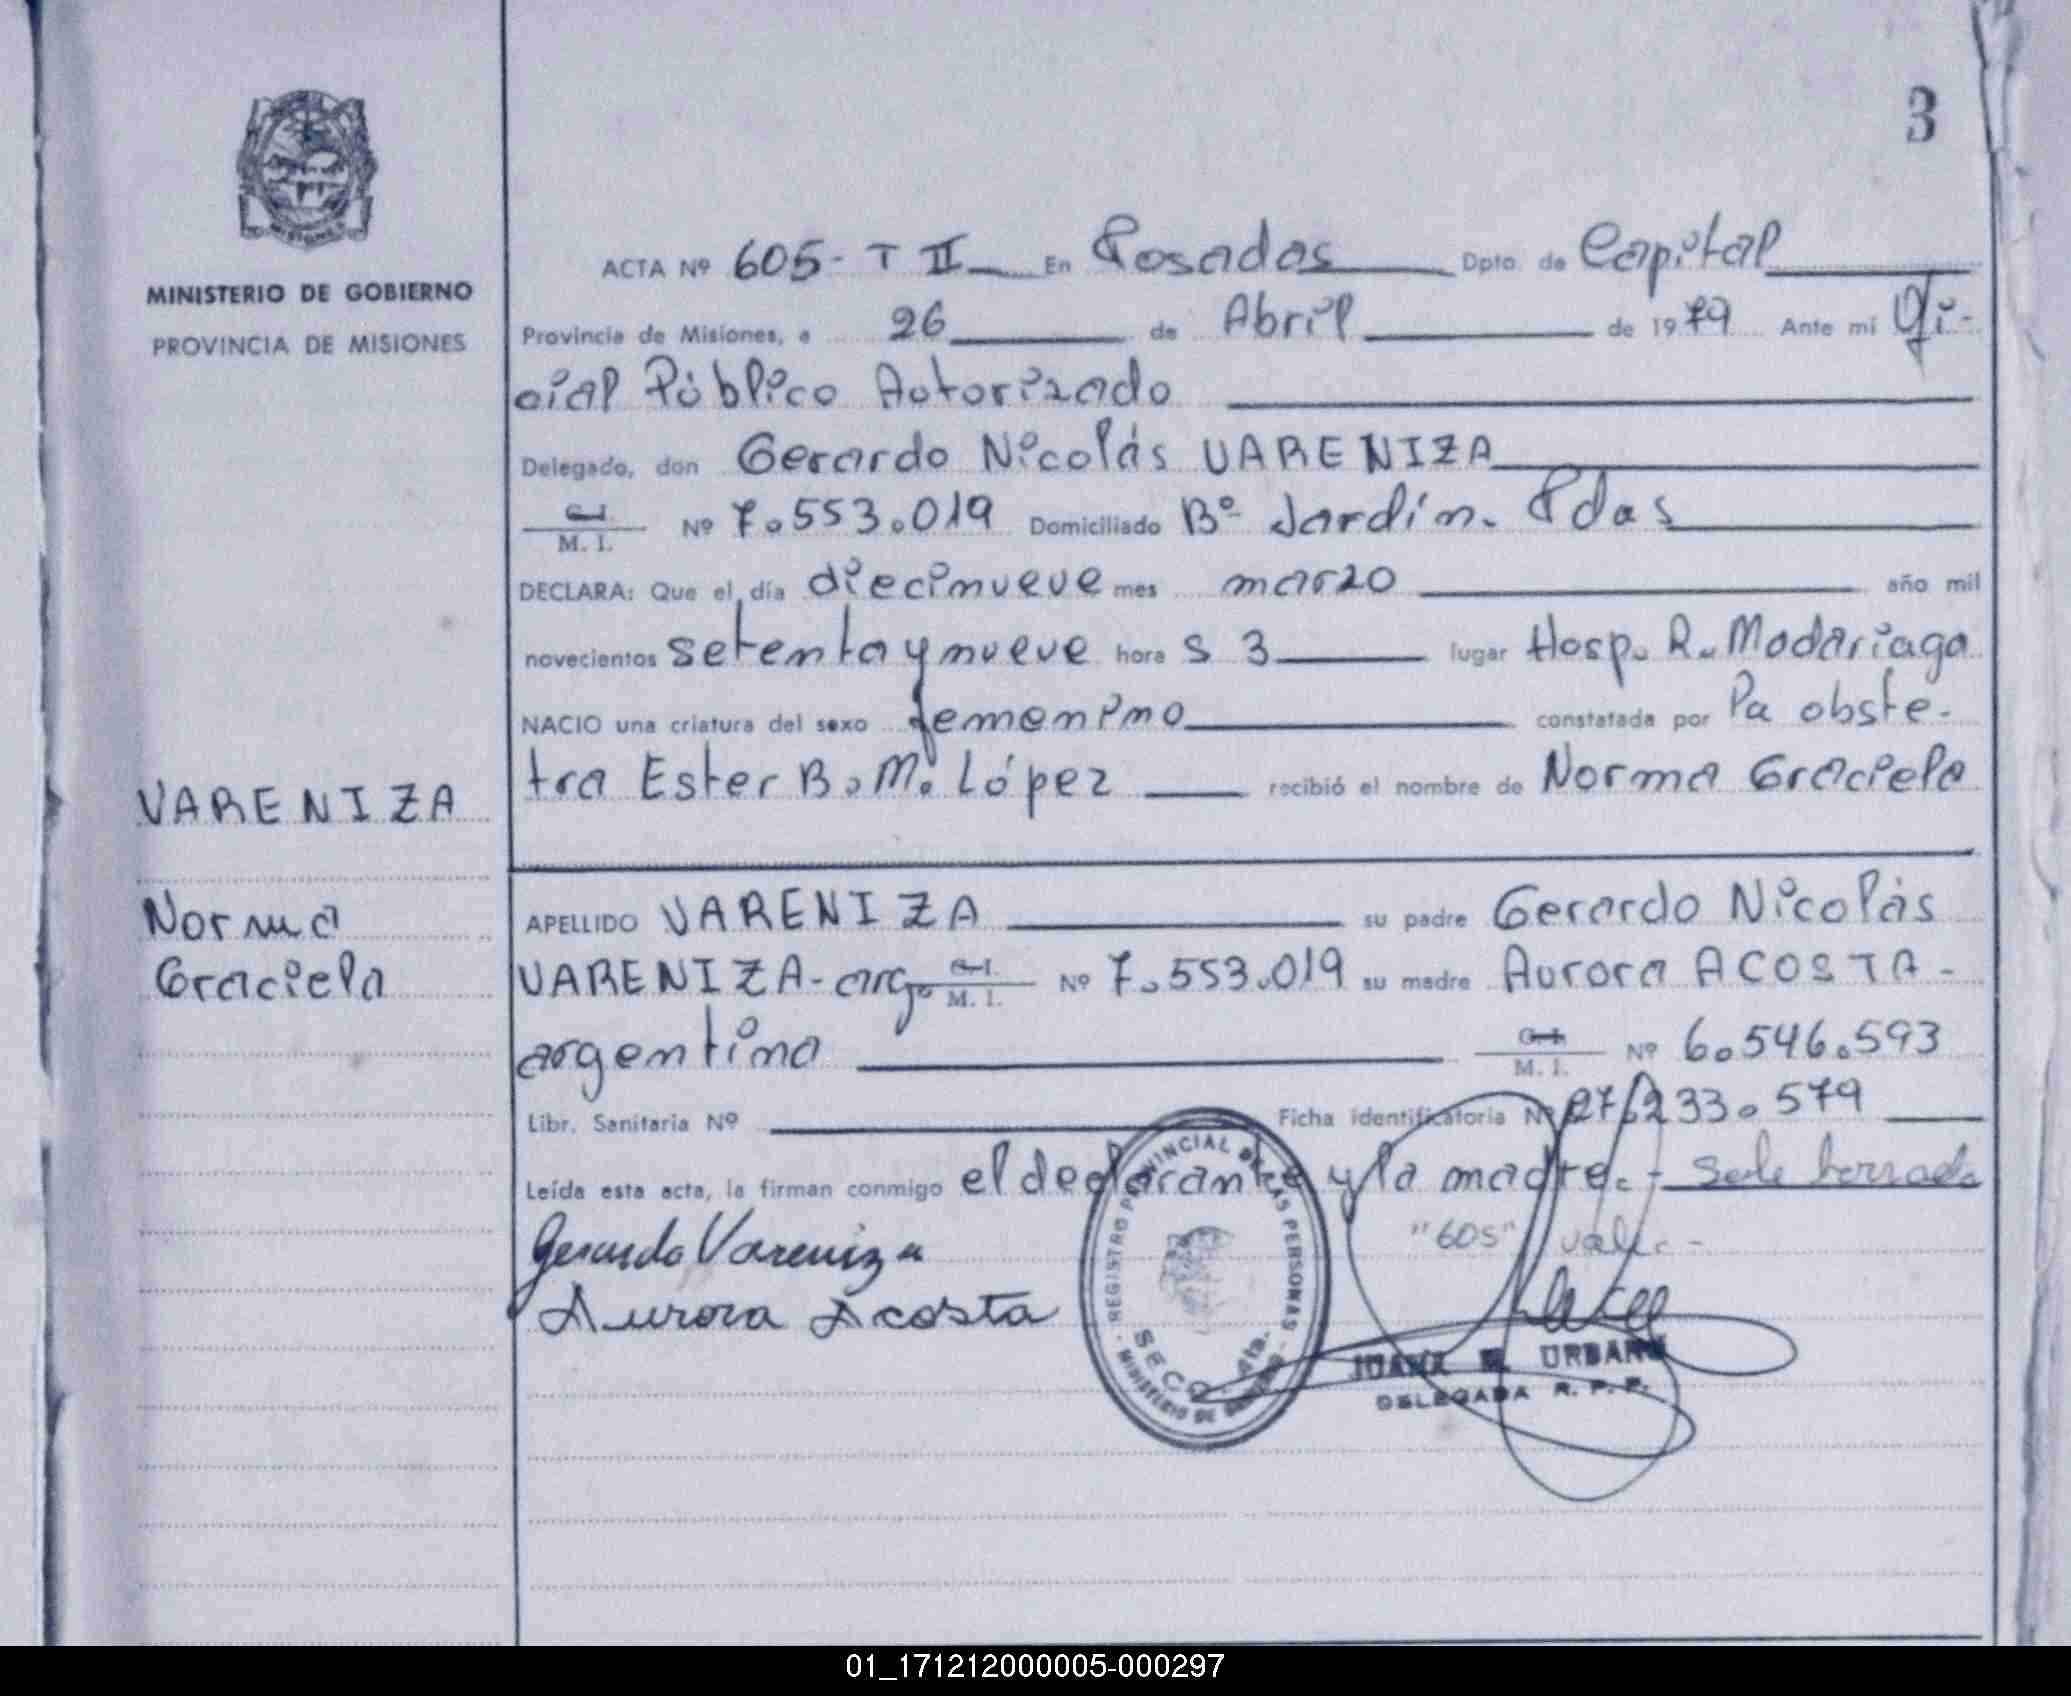 3
MISIONES
MINISTERIO DE GOBIERNO
PROVINCIA DE MISIONES
ACTA Nº 605 - T II En Posadas Dpto. de Capital
Provincia de Misiones, a 26 de Abril de 1979 Ante mí Ofi-
cial Público Autorizado
Delegado, don Gerardo Nicolás VARENIZA
C.I. M. I. Nº 7.553.019 Domiciliado Bº Jardín. Pdas
DECLARA: Que el día diecinueve mes marzo año mil
novecientos setenta y nueve hora s 3 lugar Hosp. R. Madariaga
NACIO una criatura del sexo femenino constatada por la obste-
tra Ester B. M. López recibió el nombre de Norma Graciela
VARENIZA
Norma
Graciela
APELLIDO VARENIZA su padre Gerardo Nicolás
VARENIZA - arg. C.I. M. I. Nº 7.553.019 su madre Aurora ACOSTA -
argentina C.I. M. I. Nº 6.546.593
Libr. Sanitaria Nº Ficha identificatoria Nº 27.233.579
Leída esta acta, la firman conmigo el declarante y la madre. - Sobre borrado
"605" vale. -
Gerardo Vareniza
Aurora Acosta
REGISTRO PROVINCIAL DE LAS PERSONAS
MINISTERIO DE GOBIERNO
JUANA URBANO
DELEGADA R. P. P.
01_171212000005-000297